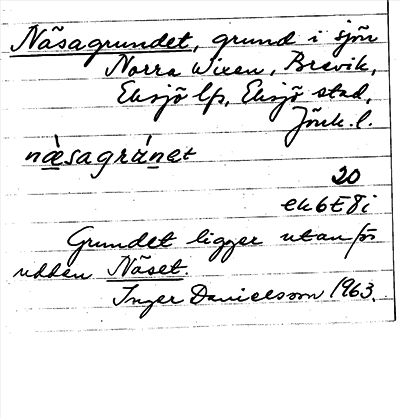 Näsagrundet, grund i sjön
Norra Wixen, Brevik,
Eksjö lfs, Eksjö stad,
Jönk. l.
næ̀sagránet
20
ek6E8i
Grundet ligger utanför
udden Näset.
Inger Danielsson 1963.